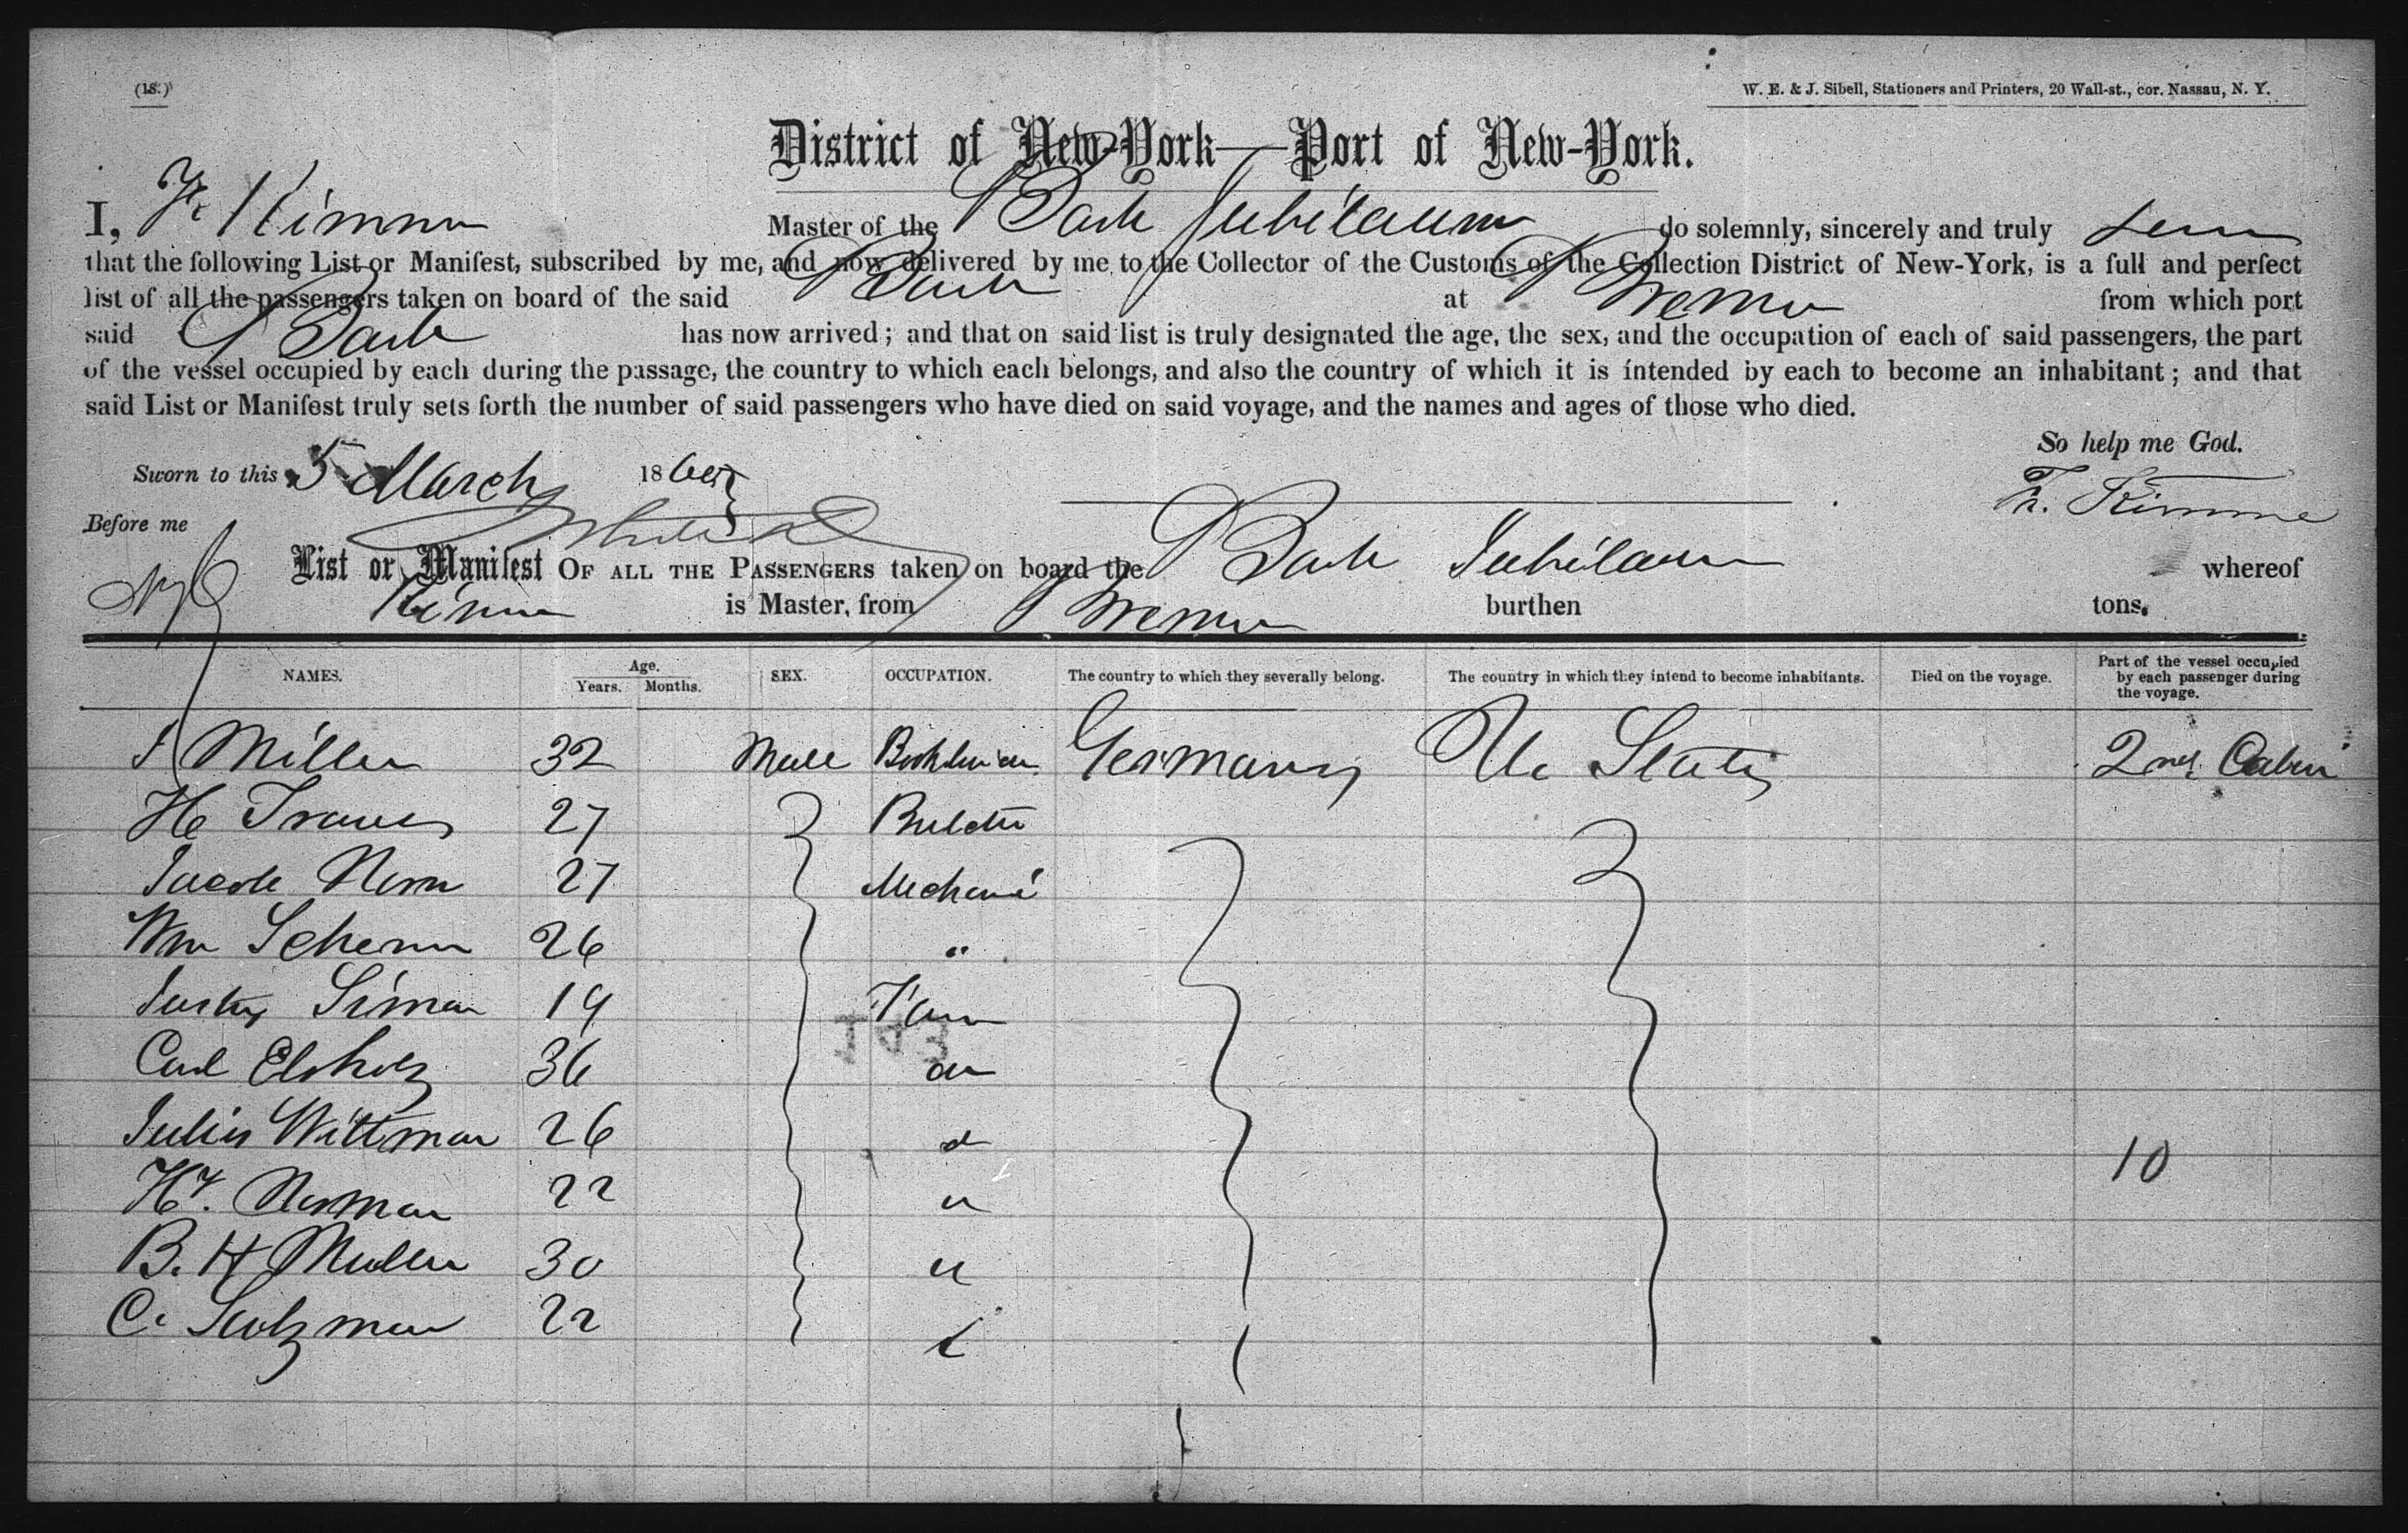 (18.)
W. E. & J. Sibell, Stationers and Printers, 20 Wall-st., cor. Nassau, N. Y.
District of New-York—Port of New-York.
I, Kimme Master of the Bark Jubilaum do solemnly, sincerely and truly
that the following List or Manifest, subscribed by me, and now delivered by me to the Collector of the Customs of the Collection District of New-York, is a full and perfect
list of all the passengers taken on board of the said Bark at Bremen from which port
said Bark has now arrived; and that on said list is truly designated the age, the sex, and the occupation of each of said passengers, the part
of the vessel occupied by each during the passage, the country to which each belongs, and also the country of which it is intended by each to become an inhabitant; and that
said List or Manifest truly sets forth the number of said passengers who have died on said voyage, and the names and ages of those who died.
So help me God.
Sworn to this 5 March 186
Fr. Kimme
Before me
List or Manifest OF ALL THE PASSENGERS taken on board the Bark Jubilaum whereof
Kimme is Master, from Bremen burthen tons.
NAMES. Age. Years. Months. SEX. OCCUPATION. The country to which they severally belong. The country in which they intend to become inhabitants. Died on the voyage. Part of the vessel occupied by each passenger during the voyage.
Miller 32 Male Germany U. States 2nd. Cabin
H 27
Jacob 27 Mechanic
Wm 26 "
Siman 19 Farm
Carl Elsholz 36 do
Julius Wittman 26
Hy. Norman 22
B. H Muller 30
C. 22
10